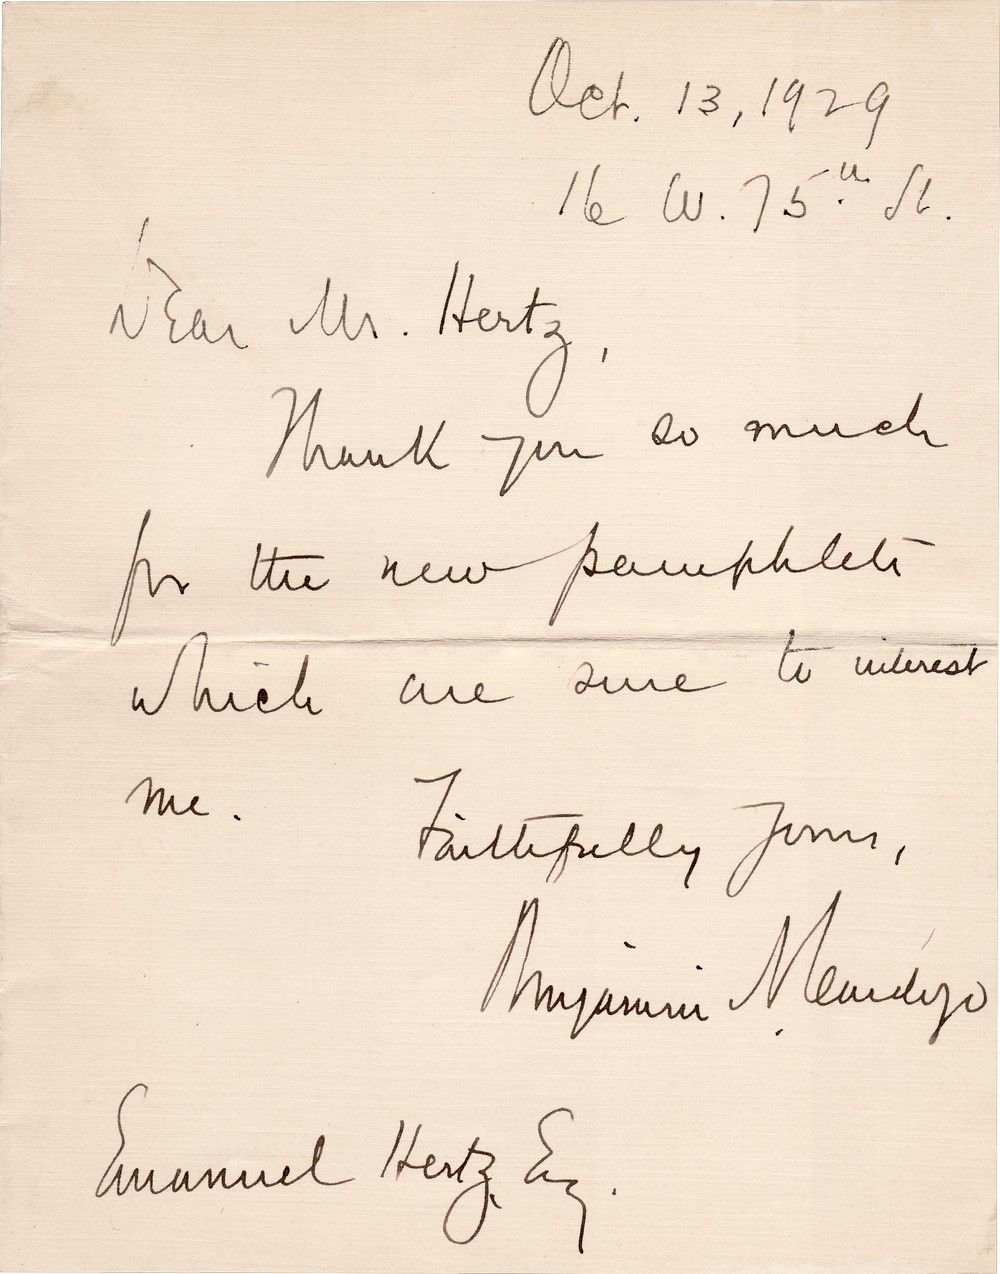 Oct. 13, 1929
16 W. 75th St.
Dear Mr. Hertz,
Thank you so much
for the new pamphlets
which are sure to interest
me.
Faithfully yours,
Benjamin N. Cardozo
Emanuel Hertz, Esq.